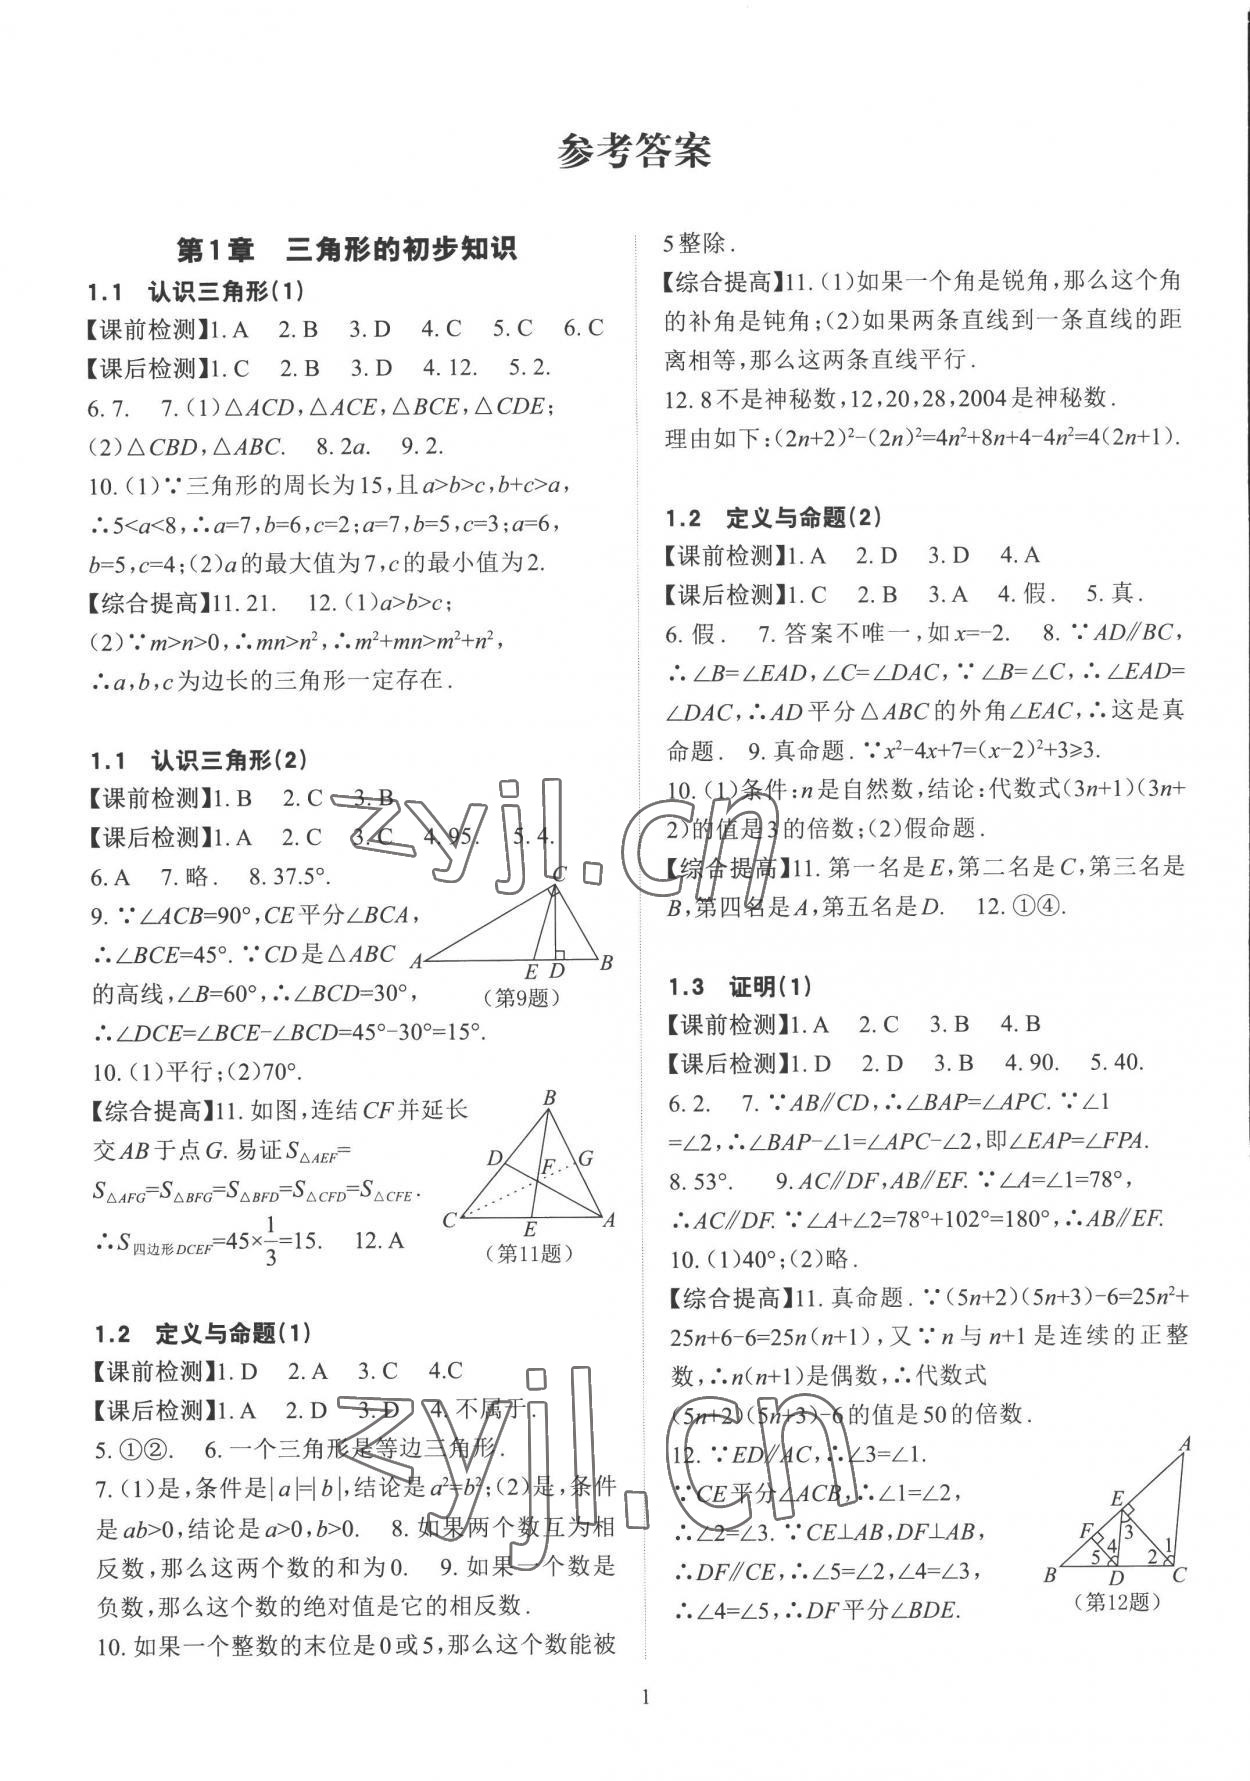 参考答案
第1章 三角形的初步知识
1.1 认识三角形(1)
【课前检测】1.A 2.B 3.D 4.C 5.C 6.C
【课后检测】1.C 2.B 3.D 4.12. 5.2.
6.7. 7.(1)△ACD,△ACE,△BCE,△CDE;
(2)△CBD,△ABC. 8.2a. 9.2.
10.(1)∵三角形的周长为15,且a>b>c,b+c>a,
∴5<a<8,∴a=7,b=6,c=2;a=7,b=5,c=3;a=6,
b=5,c=4;(2)a的最大值为7,c的最小值为2.
【综合提高】11.21. 12.(1)a>b>c;
(2)∵m>n>0,∴mn>n²,∴m²+mn>m²+n²,
∴a,b,c为边长的三角形一定存在.
1.1 认识三角形(2)
【课前检测】1.B 2.C 3.B
【课后检测】1.A 2.C 3.C 4.95. 5.4.
6.A 7.略. 8.37.5°.
9.∵∠ACB=90°,CE平分∠BCA,
∴∠BCE=45°.∵CD是△ABC
的高线,∠B=60°,∴∠BCD=30°,
∴∠DCE=∠BCE-∠BCD=45°-30°=15°.
C
A
E D
B
(第9题)
10.(1)平行;(2)70°.
【综合提高】11.如图,连结CF并延长
交AB于点G.易证S△AEF=
S△AFG=S△BFG=S△BFD=S△CFD=S△CFE.
∴S四边形DCEF=45×1/3=15. 12.A
B
D
F
G
C
E
A
(第11题)
1.2 定义与命题(1)
【课前检测】1.D 2.A 3.C 4.C
【课后检测】1.A 2.D 3.D 4.不属于.
5.①②. 6.一个三角形是等边三角形.
7.(1)是,条件是|a|=|b|,结论是a²=b²;(2)是,条件
是ab>0,结论是a>0,b>0. 8.如果两个数互为相
反数,那么这两个数的和为0. 9.如果一个数是
负数,那么这个数的绝对值是它的相反数.
10.如果一个整数的末位是0或5,那么这个数能被
5整除.
【综合提高】11.(1)如果一个角是锐角,那么这个角
的补角是钝角;(2)如果两条直线到一条直线的距
离相等,那么这两条直线平行.
12.8不是神秘数,12,20,28,2004是神秘数.
理由如下:(2n+2)²-(2n)²=4n²+8n+4-4n²=4(2n+1).
1.2 定义与命题(2)
【课前检测】1.A 2.D 3.D 4.A
【课后检测】1.C 2.B 3.A 4.假. 5.真.
6.假. 7.答案不唯一,如x=-2. 8.∵AD∥BC,
∴∠B=∠EAD,∠C=∠DAC,∵∠B=∠C,∴∠EAD=
∠DAC,∴AD平分△ABC的外角∠EAC,∴这是真
命题. 9.真命题.∵x²-4x+7=(x-2)²+3≥3.
10.(1)条件:n是自然数,结论:代数式(3n+1)(3n+
2)的值是3的倍数;(2)假命题.
【综合提高】11.第一名是E,第二名是C,第三名是
B,第四名是A,第五名是D. 12.①④.
1.3 证明(1)
【课前检测】1.A 2.C 3.B 4.B
【课后检测】1.D 2.D 3.B 4.90. 5.40.
6.2. 7.∵AB∥CD,∴∠BAP=∠APC.∵∠1
=∠2,∴∠BAP-∠1=∠APC-∠2,即∠EAP=∠FPA.
8.53°. 9.AC∥DF,AB∥EF.∵∠A=∠1=78°,
∴AC∥DF.∵∠A+∠2=78°+102°=180°,∴AB∥EF.
10.(1)40°;(2)略.
【综合提高】11.真命题.∵(5n+2)(5n+3)-6=25n²+
25n+6-6=25n(n+1),又∵n与n+1是连续的正整
数,∴n(n+1)是偶数,∴代数式
(5n+2)(5n+3)-6的值是50的倍数.
12.∵ED∥AC,∴∠3=∠1.
∵CE平分∠ACB,∴∠1=∠2,
∴∠2=∠3.∵CE⊥AB,DF⊥AB,
∴DF∥CE,∴∠5=∠2,∠4=∠3,
∴∠4=∠5,∴DF平分∠BDE.
A
E
F
3
4
5
2
1
B
D
C
(第12题)
1
zyjl.cn
zyjl.cn